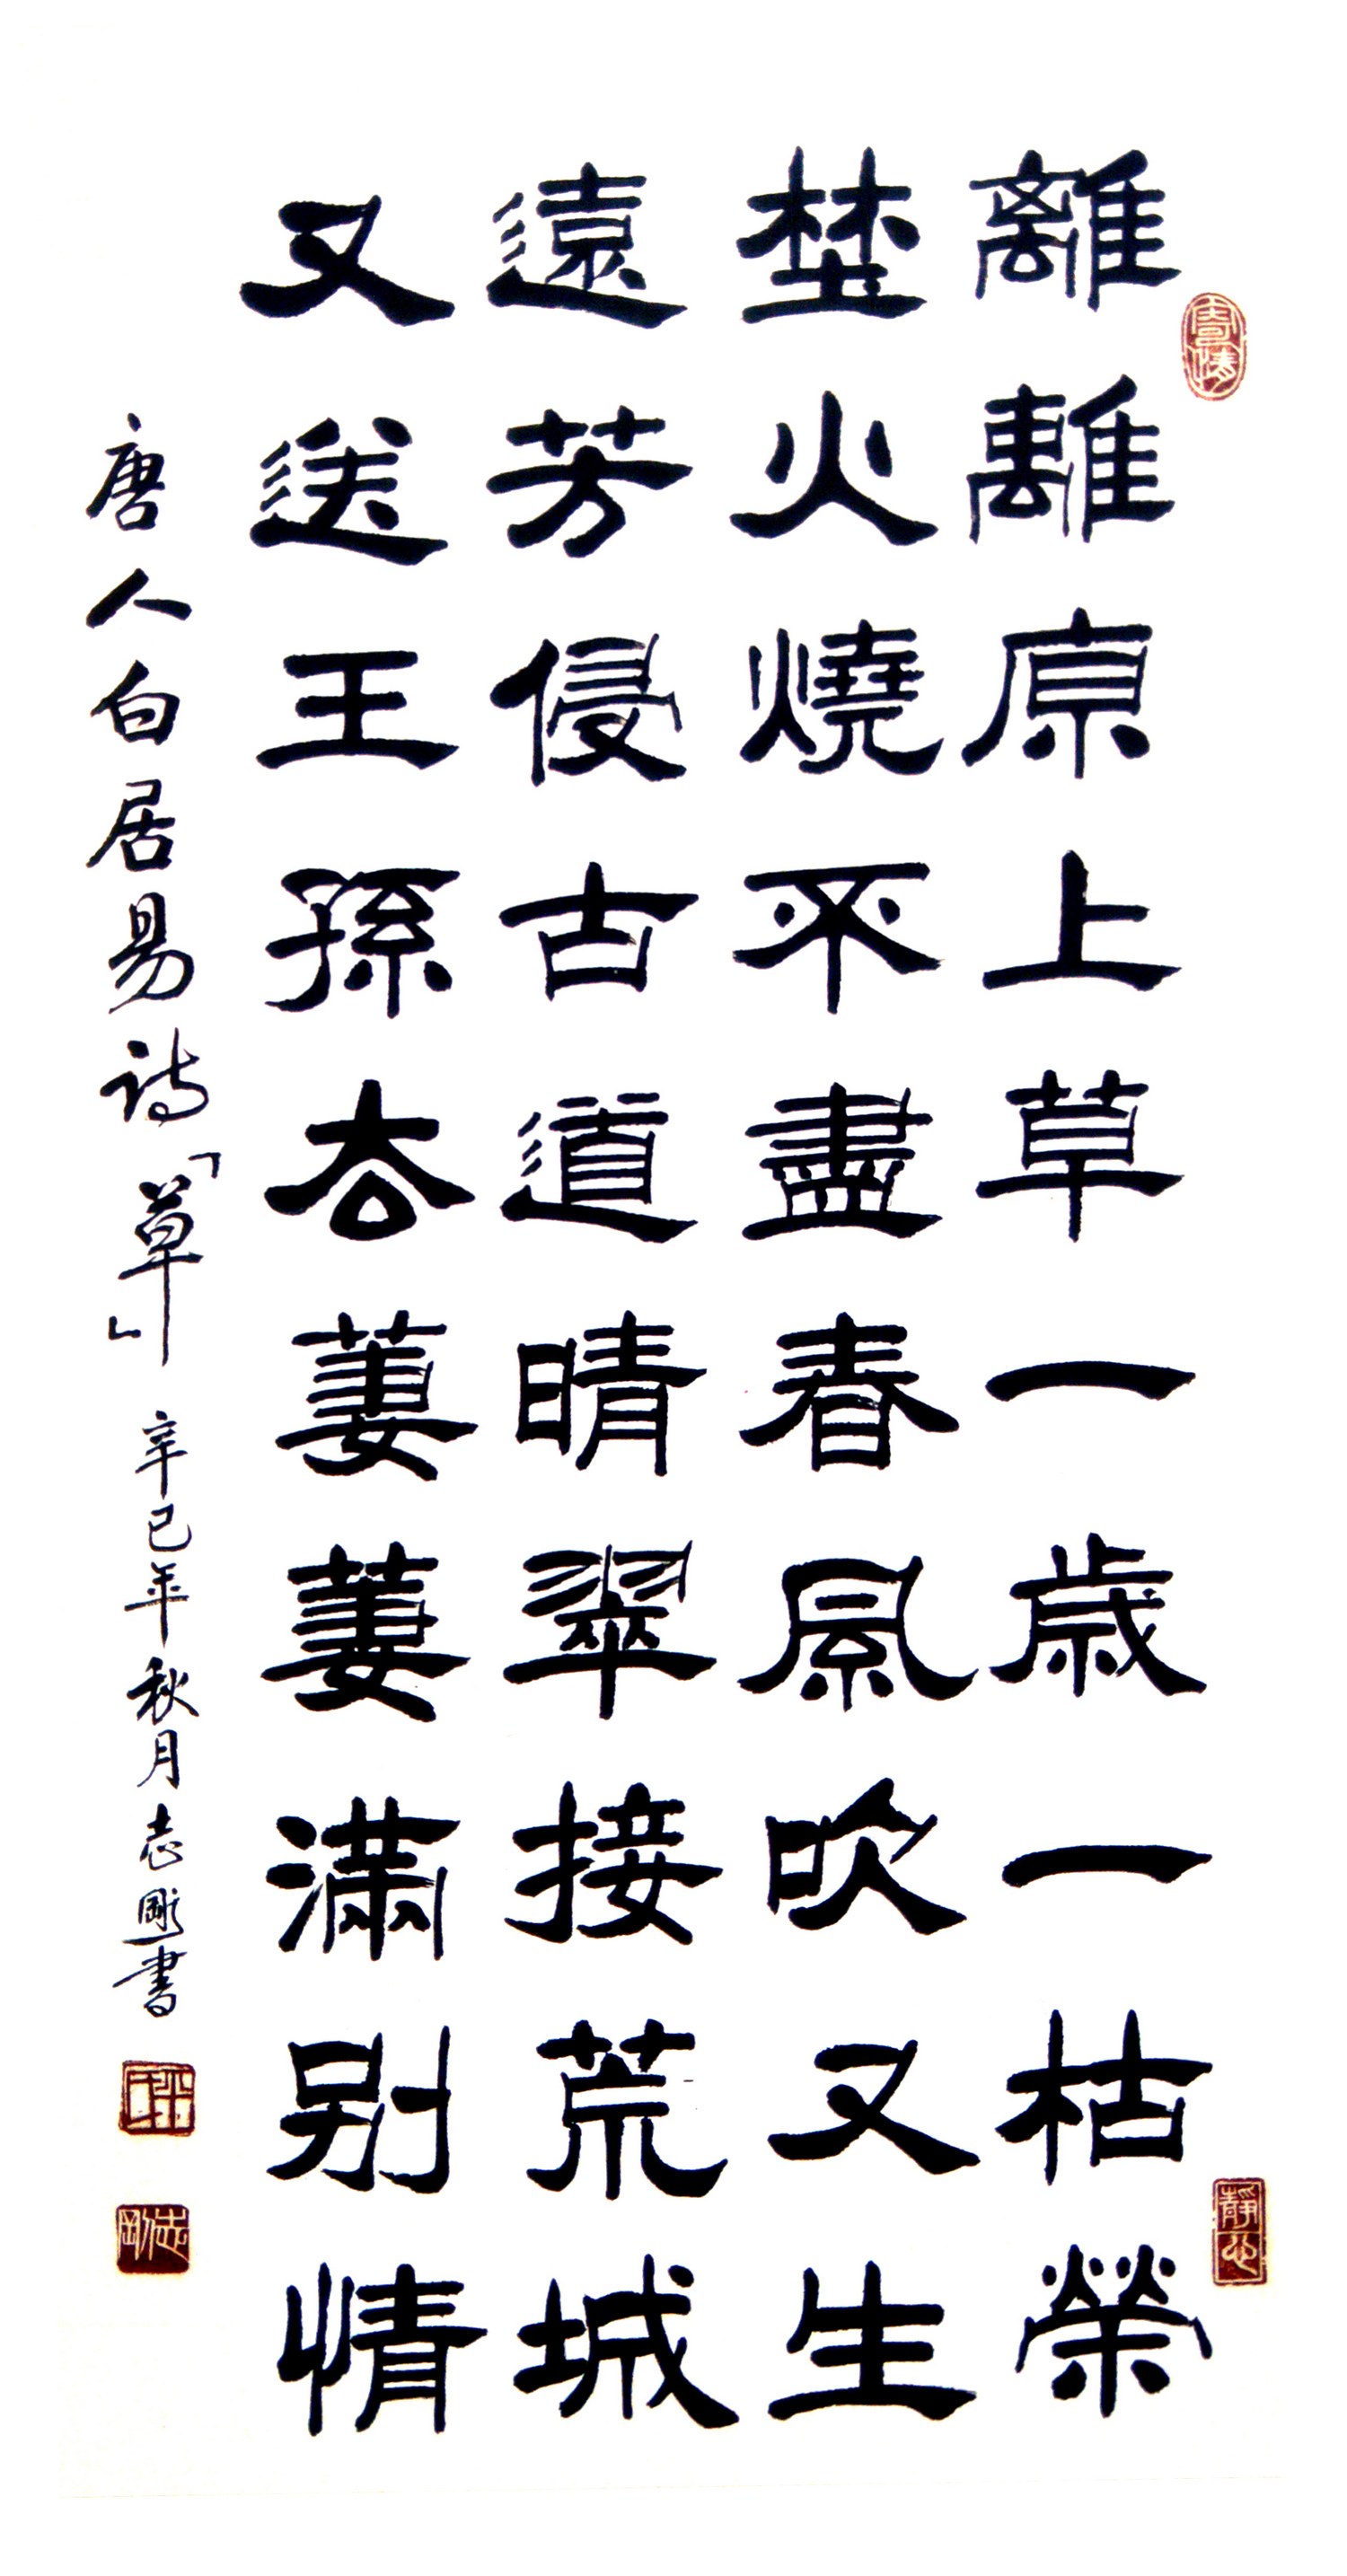 離離原上草一歲一枯榮
埜火燒不盡春風吹又生
遠芳侵古道晴翠接荒城
又送王孫去萋萋滿別情
唐人白居易詩「草」辛巳年秋月志剛書
寄情
靜心
志剛